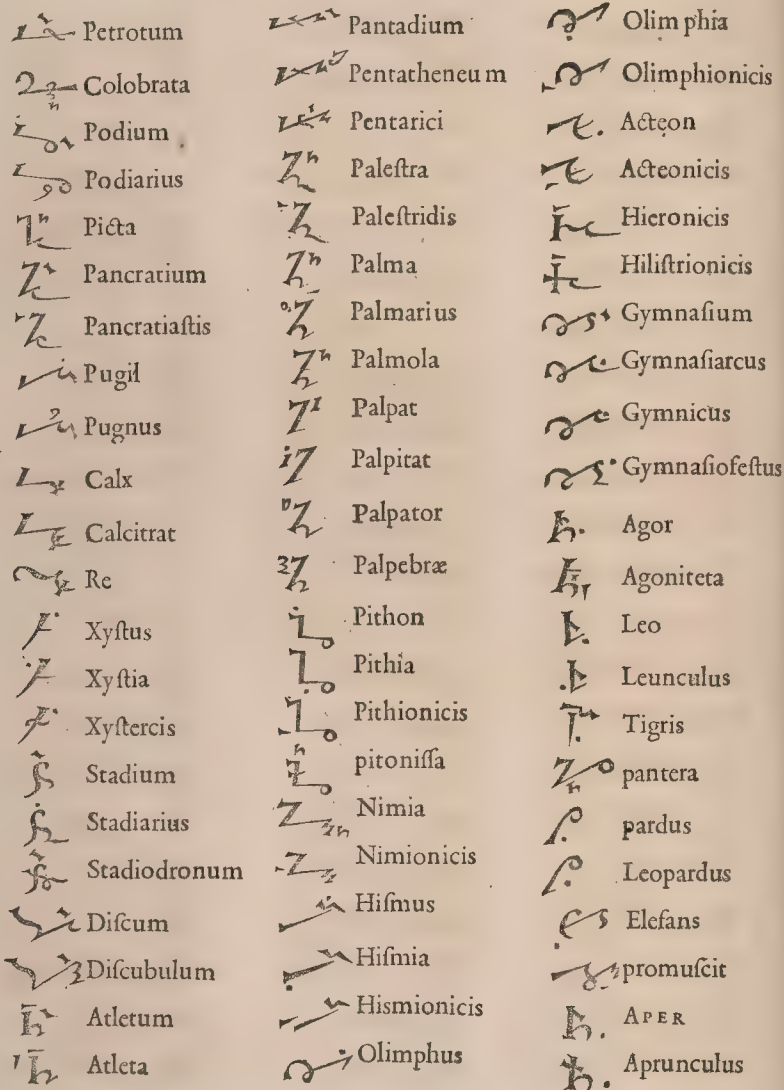 Petrotum
Colobrata
Podium .
Podiarius
Picta
Pancratium
Pancratiaſtis
Pugil
Pugnus
Calx
Calcitrat
Re
Xyſtus
Xyſtia
Xyſtercis
Stadium
Stadiarius
Stadiodronum
Diſcum
Diſcubulum
Atletum
Atleta
Pantadium
Pentatheneum
Pentarici
Paleſtra
Paleſtridis
Palma
Palmarius
Palmola
Palpat
Palpitat
Palpator
Palpebræ
Pithon
Pithia
Pithionicis
pitoniſſa
Nimia
Nimionicis
Hiſmus
Hiſmia
Hismionicis
Olimphus
Olimphia
Olimphionicis
Acteon
Acteonicis
Hieronicis
Hiliſtrionicis
Gymnaſium
Gymnaſiarcus
Gymnicus
Gymnaſiofeſtus
Agor
Agoniteta
Leo
Leunculus
Tigris
pantera
pardus
Leopardus
Elefans
promuſcit
APER
Aprunculus